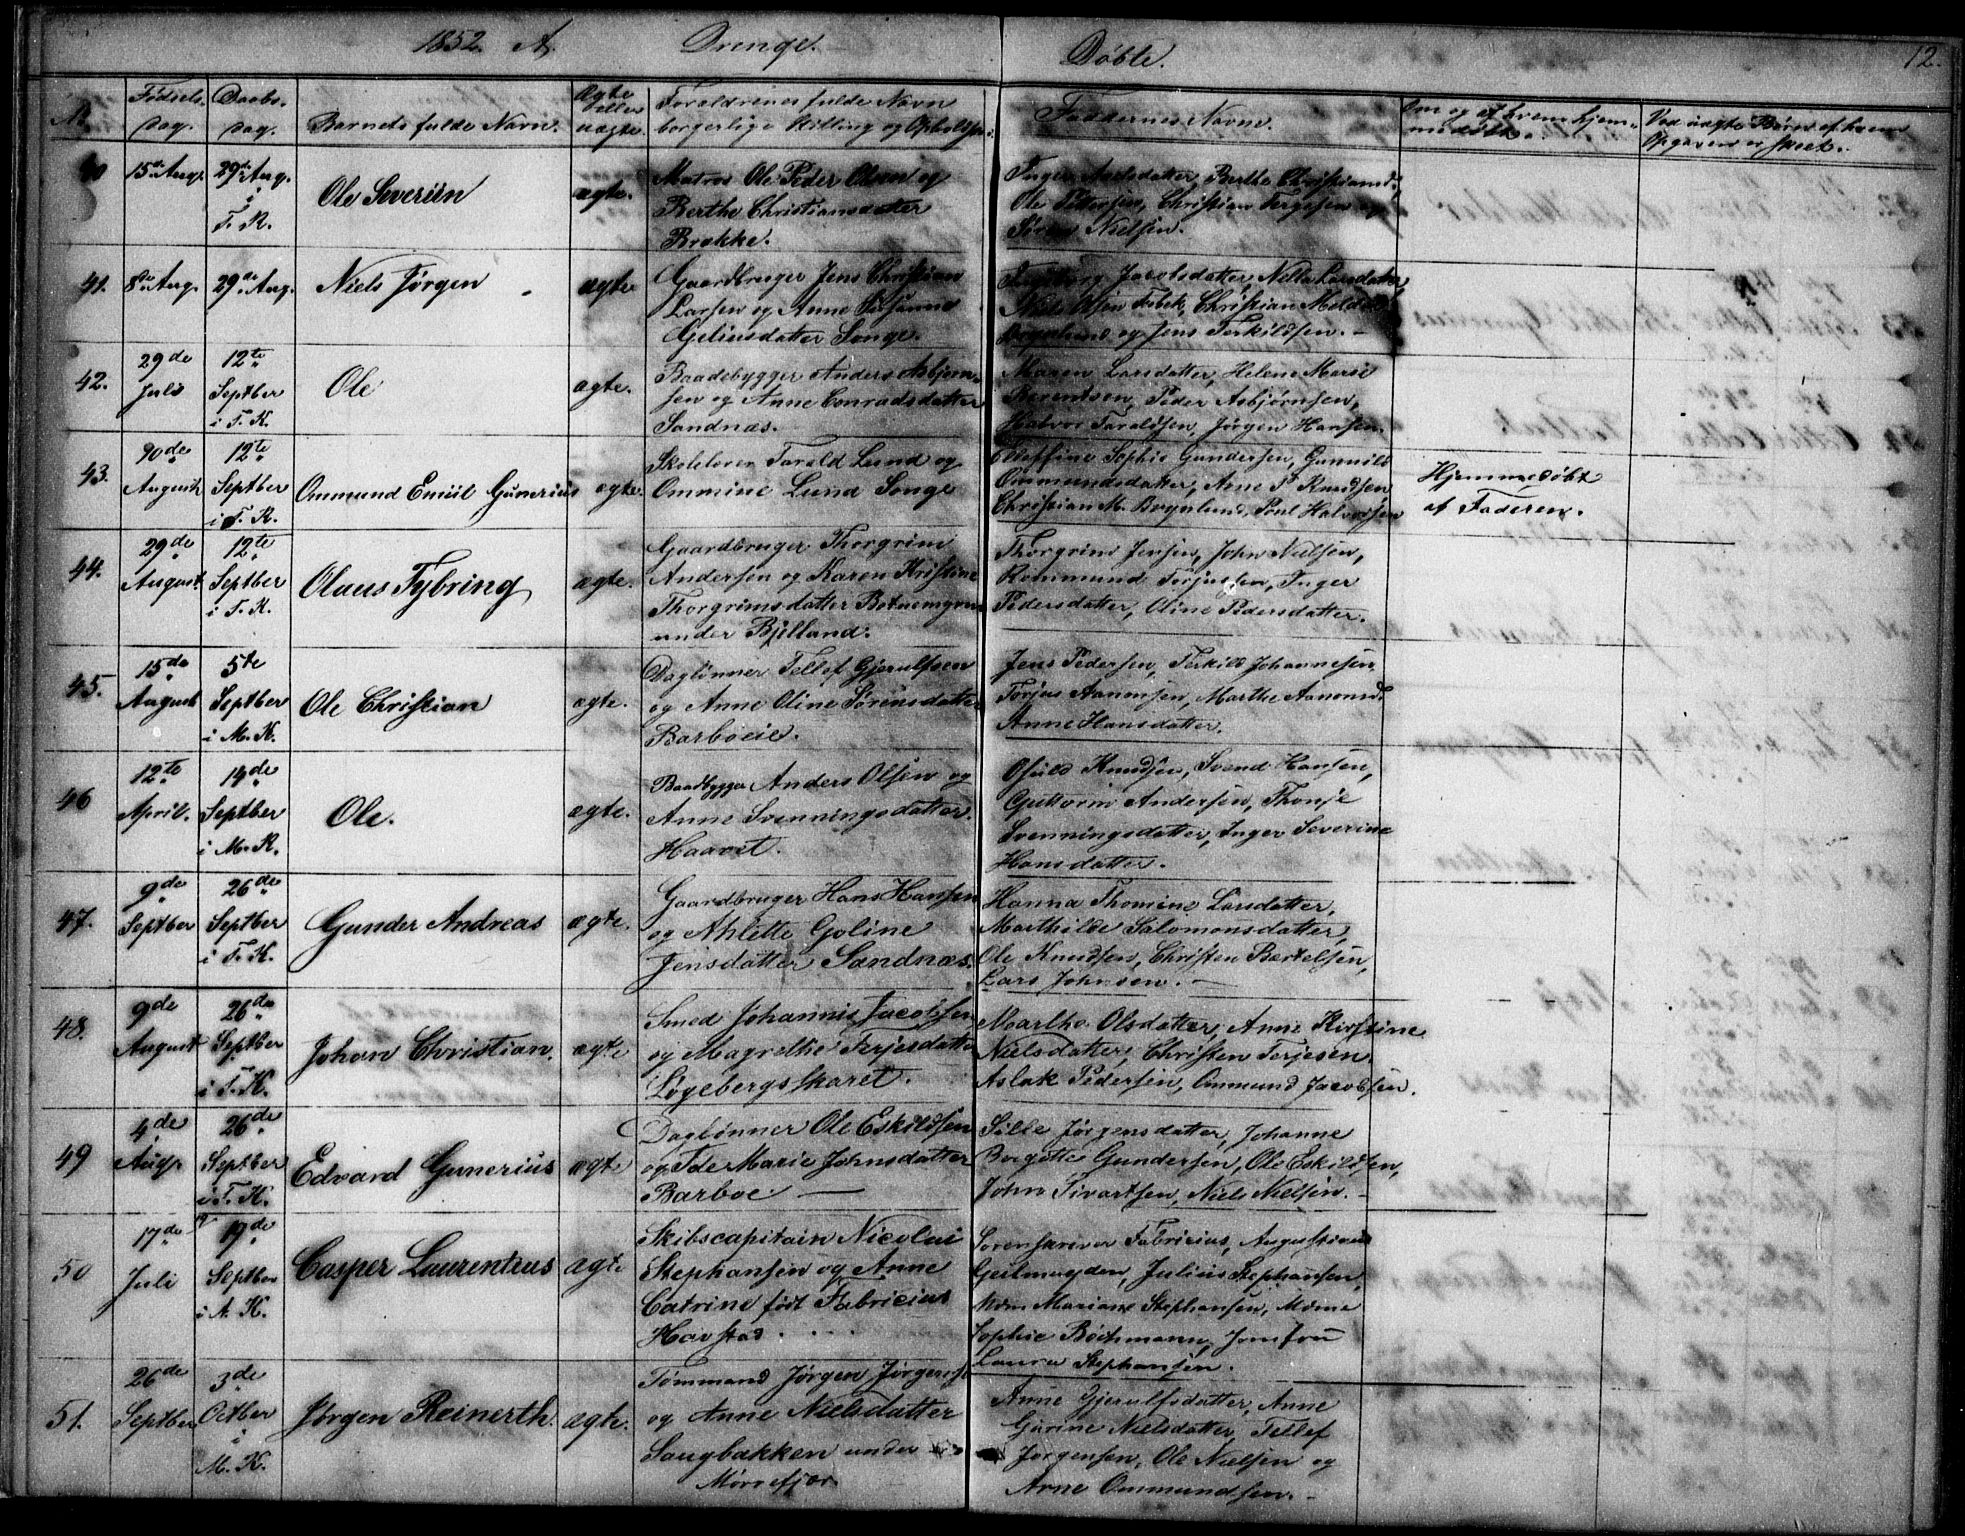 1852. A. Drenge. Døbte. 12.
No. Fødsels- Daabs- Barnets fulde Navn. Ægte eller uægte. Forældrenes fulde Navn Faddernes Navne. Om og af hvem hjem- Ved uægte Børn af hvem
Dag. Dag. borgerlige Stilling og Opholds medøbt. Opgaven er skeet.
40 15de Aug. 29de Aug. i T. K. Ole Severiin ægte. Matros Ole Peder Olsen og
Berthe Christiansdatter
Brække.
Inger Axelsdatter, Berthe Christiansd.
Ole Pedersen, Christian Terjesen og
Søren Nielsen.
41. 8de Aug. 29de Aug. Niels Jørgen ægte Gaardbruger Jens Christian
Larsen og Anne Susanne
Geliusdatter Songe.
Ingeborg Jacobsdatter, Nella Larsdatter
Niels Olsen Christian
og Jens Terkildsen. -
42. 29de Juli 12te Septber i T. K. Ole ægte. Baadebygger Anders Asbjørn-
sen og Anne Conradsdatter
Sandnæs.
Maren Larsdatter, Helene Marie
Berentsen, Peder Asbjørnsen,
Halvor Taraldsen, Jørgen Hansen.
43. August 12te Septber i T. K. Ommund Emiil Gunerius ægte. Skolelærer Tarald Lund og
Ommine Lund Songe
Sophie Gundersen, Gunnild
Ommundsdatter, Anne P. Knudsen
Christian M. Bognlund, Poul Halvorsen
Hjemmedøbt
af Faderen.
44. 29de August. 12te Septber i T. K. Olaus Tybring ægte. Gaardbruger Thorgrim
Andersen og Karen Kristine
Thorgrimsdatter
under Bjelland.
Thorgrim Jensen, John Nielsen,
Rommund Torjussen, Inger
Pedersdatter, Oline Pedersdatter.
45. 15de August 5te Septber i M. K. Ole Christian ægte. Daglønner Tellef Gjerulfsen
og Anne Oline Sørensdatter
Barboeie.
Jens Pedersen, Terkild Johannesen,
Torjus Aanonsen, Marthe Aanonsd.
Anne Hansdatter.
46 12te April. 19de Septber i M. K. Ole. ægte. Baadbygger Anders Olsen og
Anne Svenningsdatter
Haavet.
Osuld Knudsen, Svend Hansen,
Guttorm Andersen, Thonje
Svenningsdatter, Inger Severine
Hansdatter.
47. 9de Septber 26de Septber i T. K. Gunder Andreas ægte. Gaardbruger Hans Hansen
og Ahlette Goline
Jensdatter Sandnæs.
Hanna Thomine Larsdatter,
Marthilde Salomonsdatter,
Ole Knudsen, Christen Bertelsen,
Lars Johnsen. -
48. 9de August 26de Septber i T. K. Johan Christian. ægte Smed Johannis Jacobsen
og Magrethe Terjesdatter
Løgebergsskaret.
Marthe Olsdatter, Anne Kirstine
Nielsdatter, Christen Terjesen
Aslak Pedersen, Ommund Jacobsen.
49 4de Augs. 26de Septber i T. K. Edvard Gunerius ægte Daglønner Ole Eskildsen
og Ide Marie Johnsdatter
Barboe. —
Sille Jørgensdatter, Johanne
Birgitte Gundersen, Ole Eskildsen,
John Sivartsen, Niels Nielsen. -
50 17de Juli 19de Septber i A. K. Casper Laurentius ægte Skibscapitain Nicolai
Stephansen og Anne
Catrine født Fabricius
Havstad . . . .
Sorenskriver Fabricius, Augustinus
Geelmuyden, Julius Stephansen,
Mdm Mariane Stephansen, Mdme
Sophie Bochmann, Jomfru
Laura Stephansen.
51. 26de Septber 3de Octber i M. K. Jørgen Reinerth. ægte. Tømmand Jørgen Jørgens
og Anne Nielsdatter
Saugbakken under
Mørrefjær.
Anne Gjerulfsdatter, Anne
Gurine Nielsdatter, Tellef
Jørgensen, Ole Nielsen og
Arne Ommundsen. -